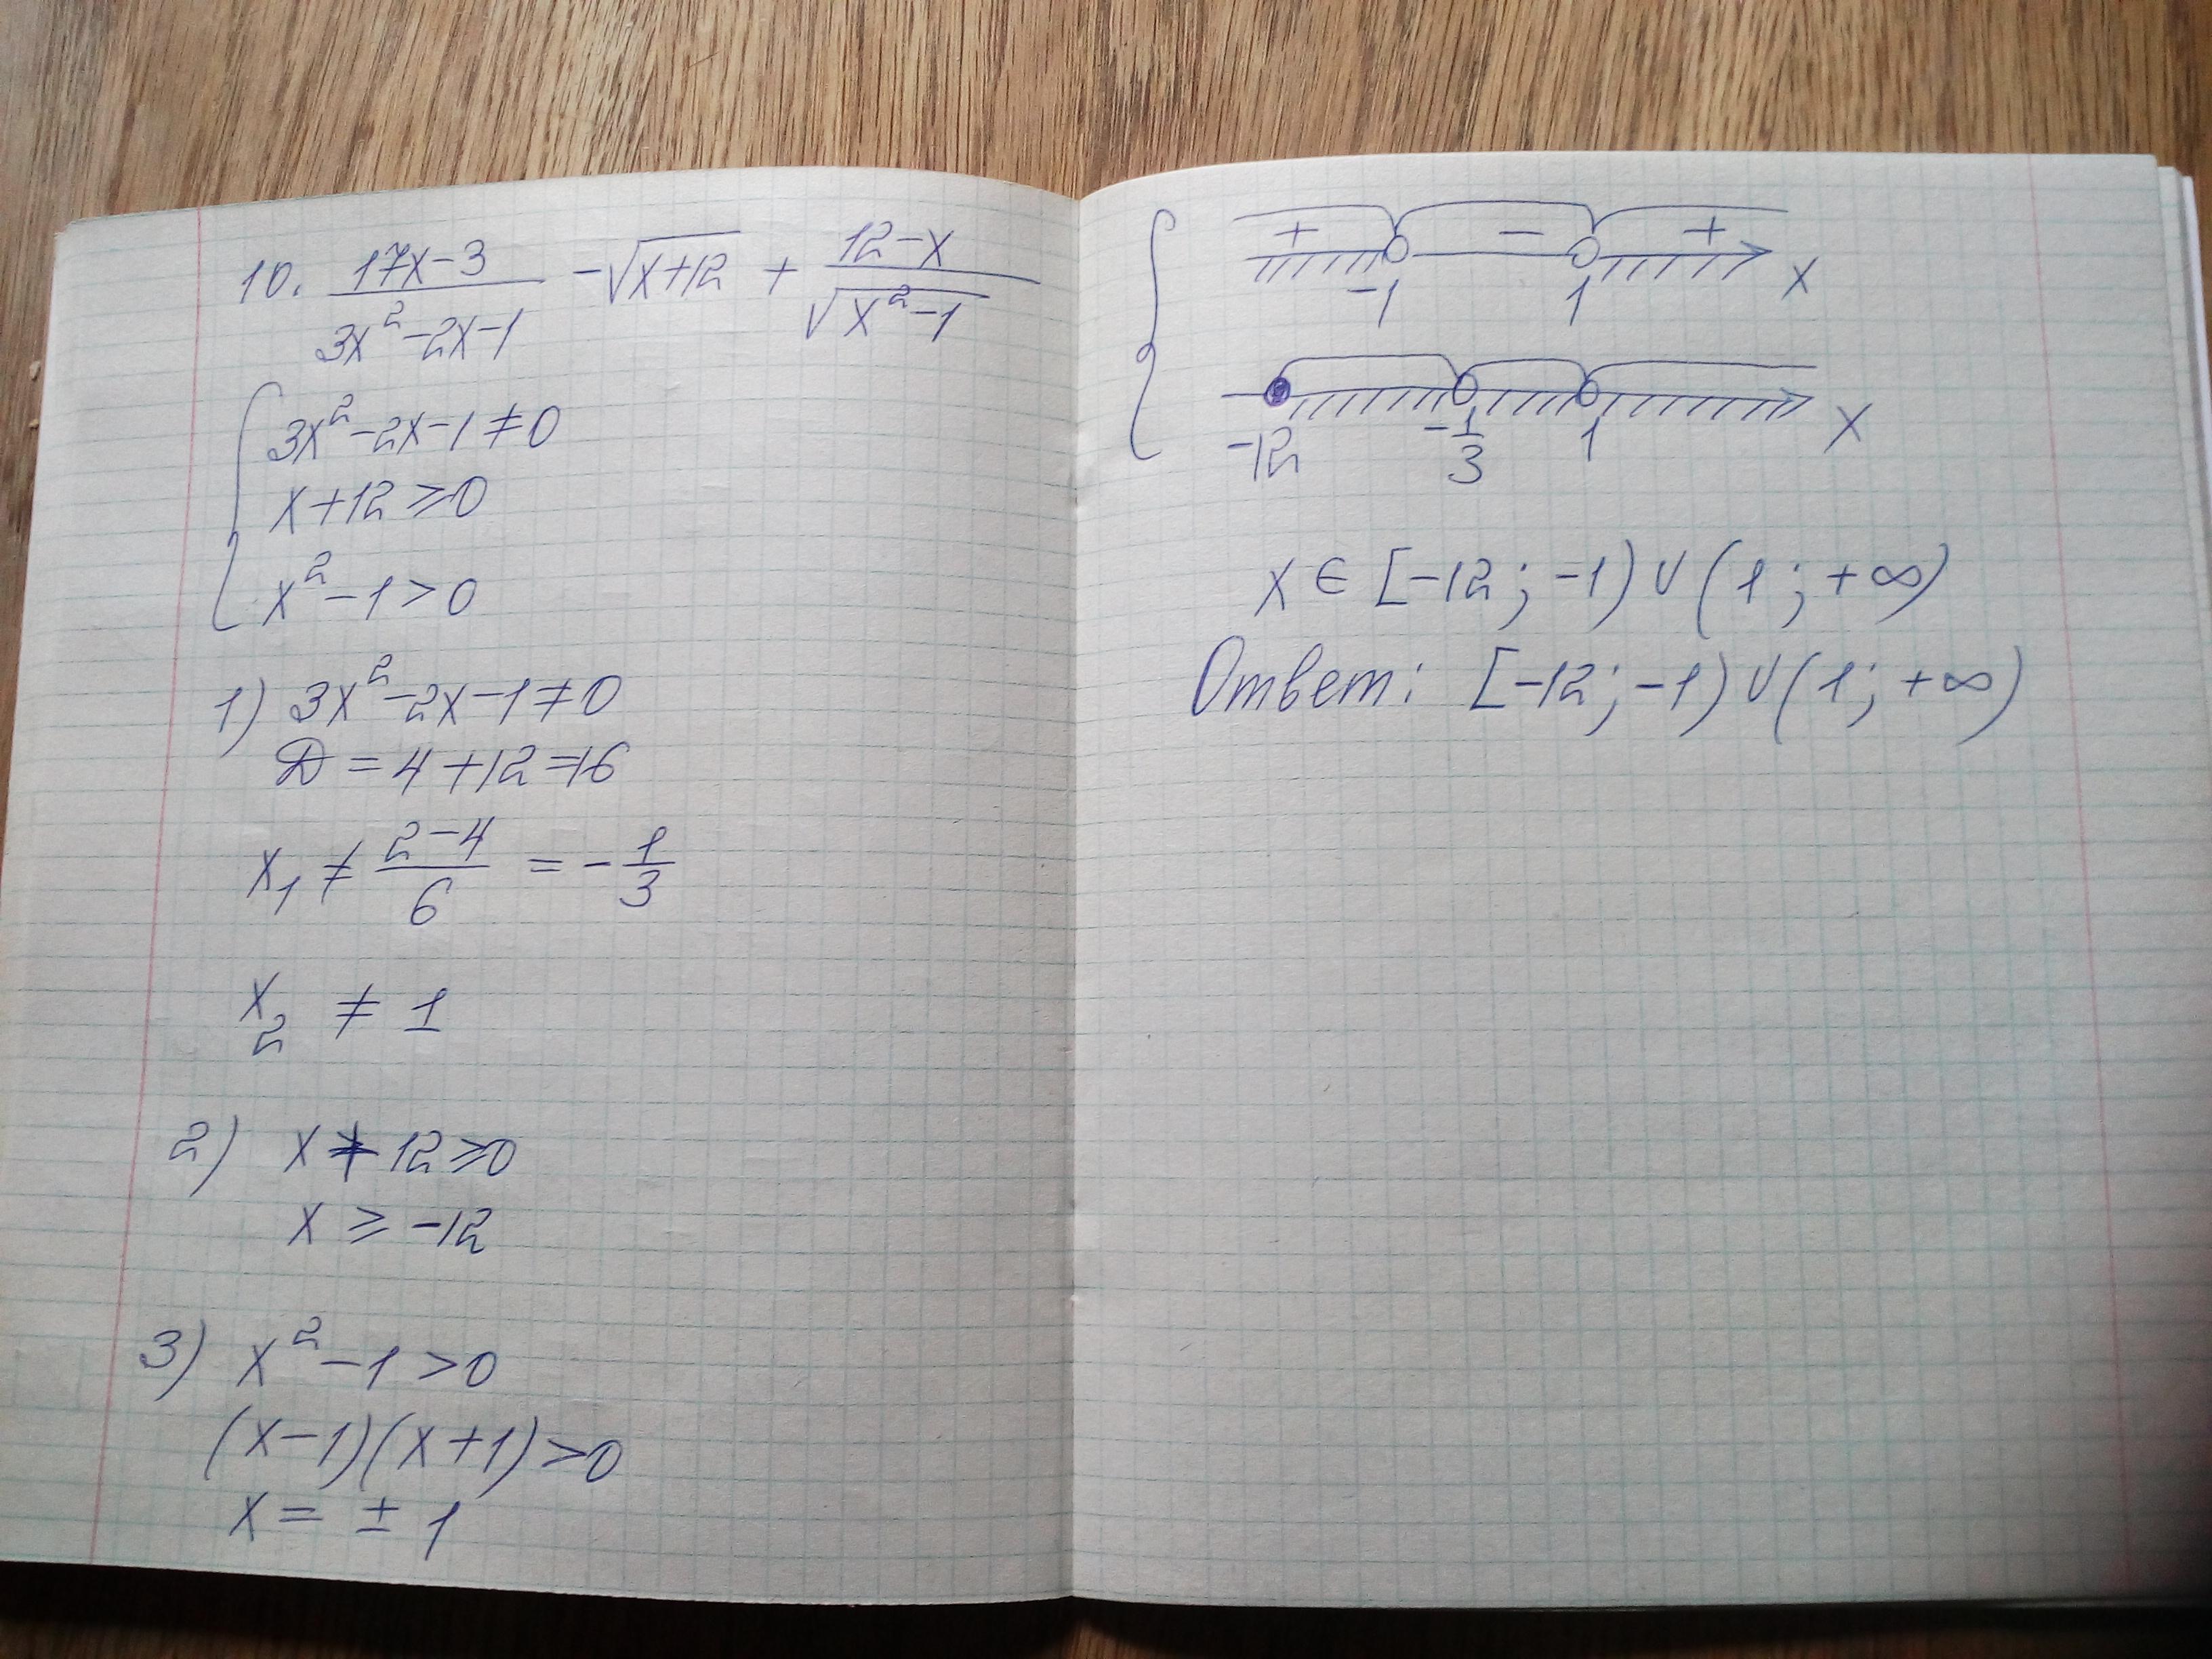 10. (17x-3)/(3x²-2x-1) -√(x+12) + (12-x)/√(x²-1)
{ 3x²-2x-1≠0
x+12⩾0
x²-1>0
1) 3x²-2x-1≠0
D=4+12=16
x₁ ≠ (2-4)/6 = -1/3
x₂ ≠ 1
2) x+12⩾0
x ⩾ -12
3) x²-1>0
(x-1)(x+1)>0
x= ± 1
{ + - +
-1 1 x
-12 -1/3 1 x
x ∈ [-12; -1) ∪ (1; +∞)
Ответ: [-12; -1) ∪ (1; +∞)